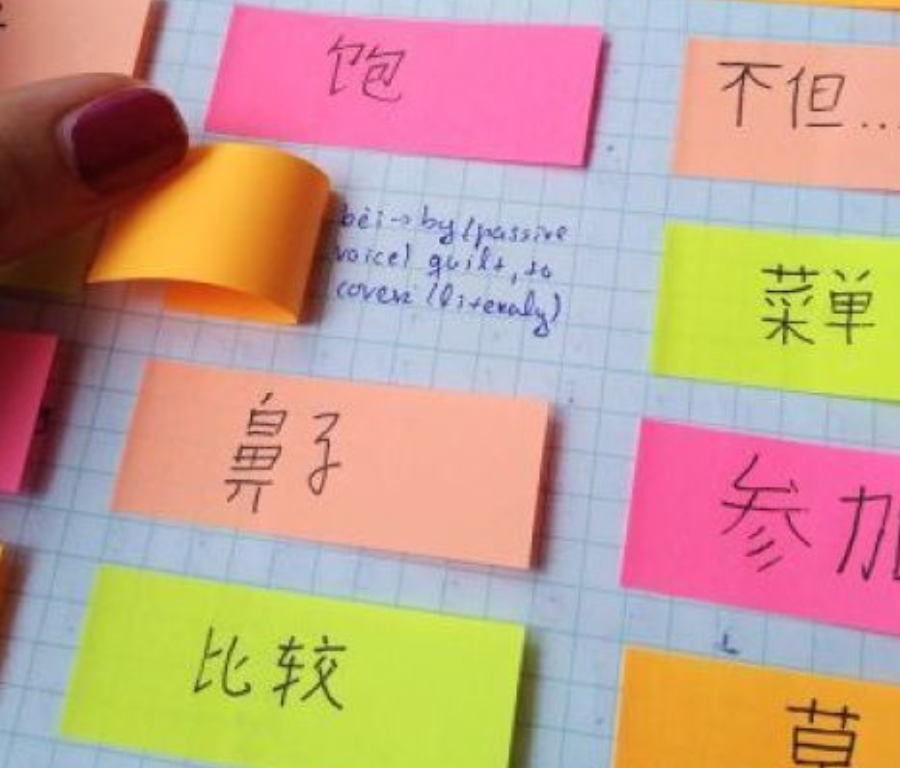 饱
不但...
bèi → by (passive
voice) quilt, to
cover (literaly)
菜单
鼻子
参加
比较
草